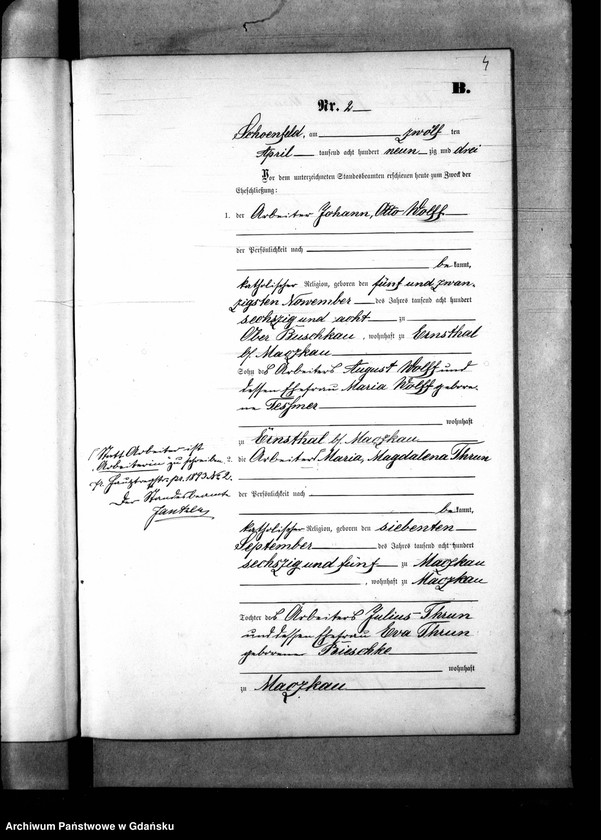 4
B.
Nr. 2
Schoenfeld, am zwölf ten
April tausend acht hundert neun zig und drei
Vor dem unterzeichneten Standesbeamten erschienen heute zum Zweck der
Eheschließung:
1. der Arbeiter Johann, Otto Wolff
der Persönlichkeit nach
be kannt,
katholischer Religion, geboren den fünf und zwan,
zigsten November des Jahres tausend acht hundert
sechszig und acht zu
Ober Buschkau, wohnhaft zu Ernsthal
b/ Maczkau
Sohn des Arbeiters August Wolff und
dessen Ehefrau Maria Wolff gebore,
ne Teßmer
wohnhaft
zu Ernsthal b/ Maczkau
2. die Arbeiter Maria, Magdalena Thrun
der Persönlichkeit nach
be kannt,
katholischer Religion, geboren den siebenten
September des Jahres tausend acht hundert
sechszig und fünf zu Maczkau
, wohnhaft zu Maczkau
Tochter des Arbeiters Julius Thrun
und dessen Ehefrau Eva Thrun
geborene Prieschke
wohnhaft
zu Maczkau
Statt Arbeiter ist
Arbeiterin zu schreiben
Hauptregstr. pr. 1893 № 2.
Der Standesbeamte
Jantzen
Archiwum Państwowe w Gdańsku